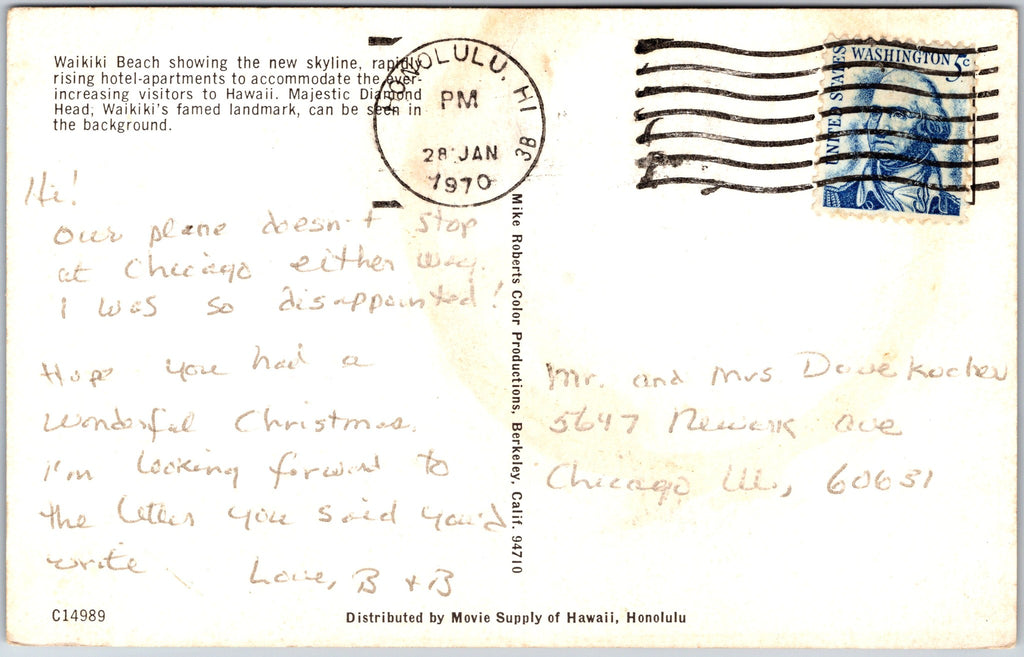 Waikiki Beach showing the new skyline, rapidly
rising hotel-apartments to accommodate the ever-
increasing visitors to Hawaii. Majestic Diamond
Head, Waikiki's famed landmark, can be seen in
the background.
HONOLULU, HI
PM
28 JAN
1970
3B
UNITED STATES
WASHINGTON 5c
Hi!
Our plane doesn't stop
at Chicago either way.
I was so disappointed!
Hope you had a
wonderful Christmas.
I'm looking forward to
the letter you said you'd
write
Love, B + B
Mike Roberts Color Productions, Berkeley, Calif. 94710
Mr. and Mrs Dave
5647 Newark Ave
Chicago Ill., 60631
C14989
Distributed by Movie Supply of Hawaii, Honolulu